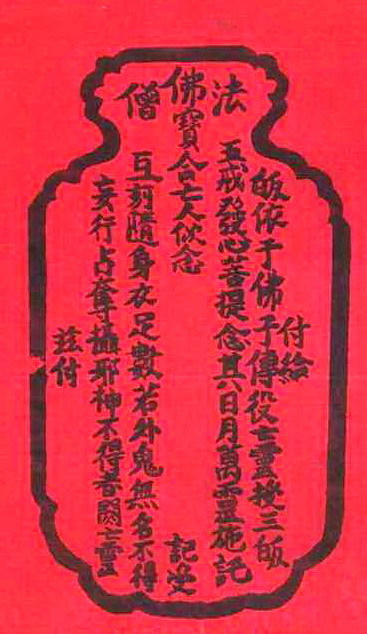 法
佛
僧
寶
付給
皈依于佛子傳役亡靈授三皈
五戒發心菩提念其六日月萬靈施記
合亡人似念
記受
互刻隨身衣足數若外鬼無名不得
妄行占奪攝邪神不得者閼亡靈
茲付